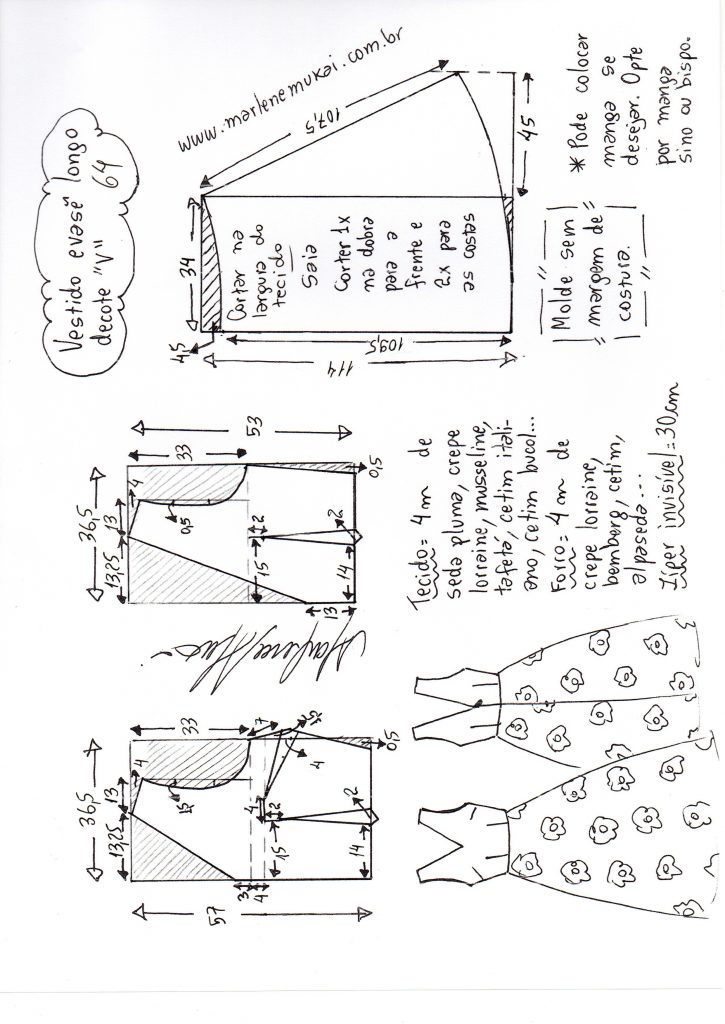 Vestido evasê longo
decote "V" 64
www.marlenemukai.com.br
107,5
45
34
4,5
109,5
114
Cortar na
largura do
tecido
Saia
Corter 1x
na dobra
para a
frente e
2x para
as costas
* Pode colocar
manga se
desejar. Opte
por manga
sino ou bispo.
Molde sem
margem de
costura.
53
33
36,5
13
4
13,25
0,5
2
15
2
14
13
0,5
Tecido = 4m de
seda pluma, crepe
lorraine, musseline,
tafetá, cetim itali-
ano, cetim bucol...
Forro = 4m de
crepe lorraine,
bemberg, cetim,
alpaseda...
Zíper invisível = 30cm
57
33
36,5
13
4
13,25
7
4
4
2
15
2
14
3
4
0,5